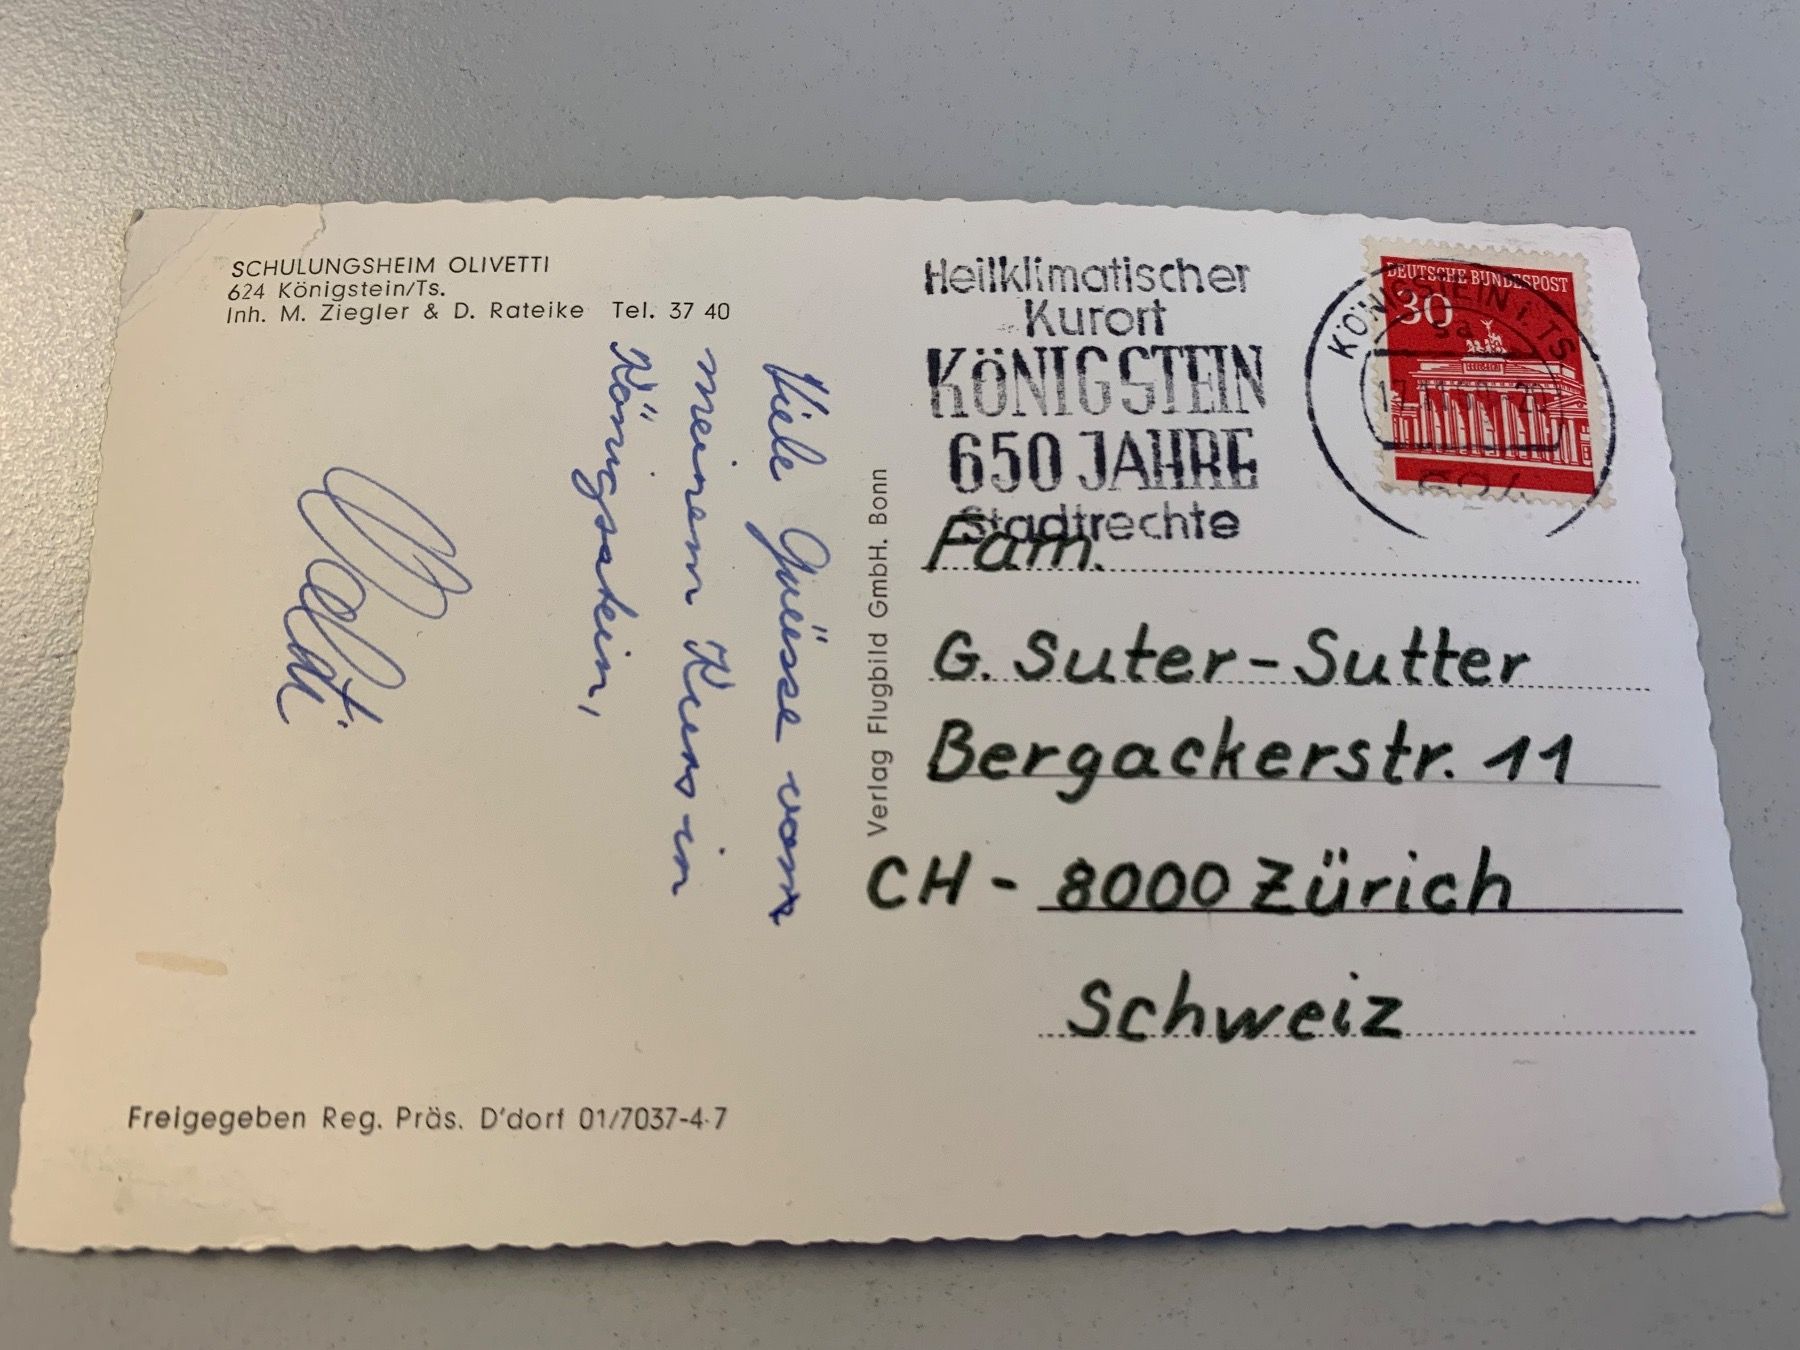 SCHULUNGSHEIM OLIVETTI
624 Königstein/Ts.
Inh. M. Ziegler & D. Rateike Tel. 37 40
Viele Grüsse vom
meinem Kurs in
Königsstein,
Freigegeben Reg. Präs. D'dorf 01/7037-4-7
Verlag Flugbild GmbH. Bonn
Heilklimatischer
Kurort
KÖNIGSTEIN
650 JAHRE
Stadtrechte
DEUTSCHE BUNDESPOST
30
KÖNIGSTEIN i. TS
Fam.
G. Suter-Sutter
Bergackerstr. 11
CH - 8000 Zürich
Schweiz